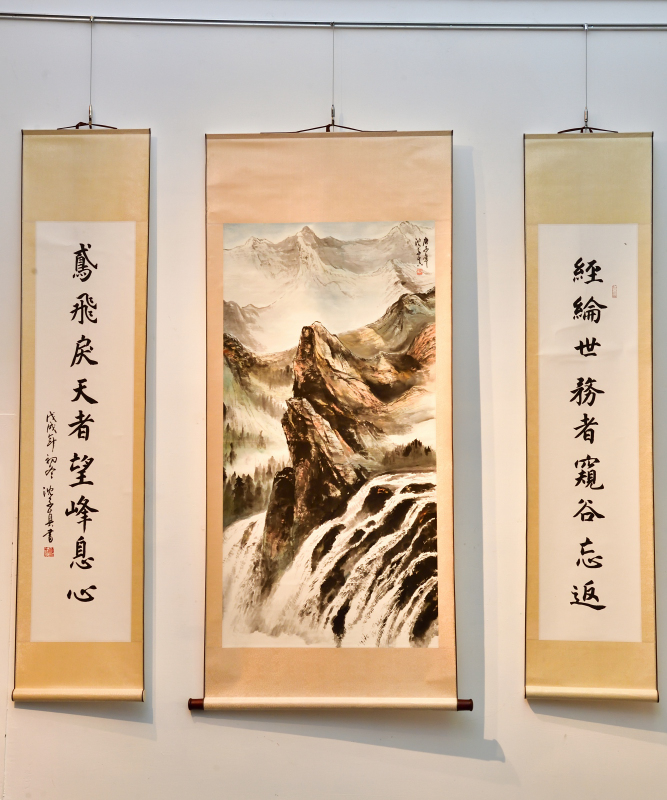 鳶飛戾天者望峰息心
戊戌年初冬
庚子年
經綸世務者窺谷忘返